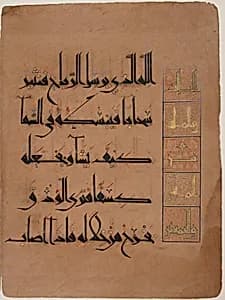 الله الذي يرسل الرياح فتثير
سحابا فيبسطه في السما
كيف يشا ويجعله
كسفا فترى الودق
يخرج من خلاله فاذا اصاب